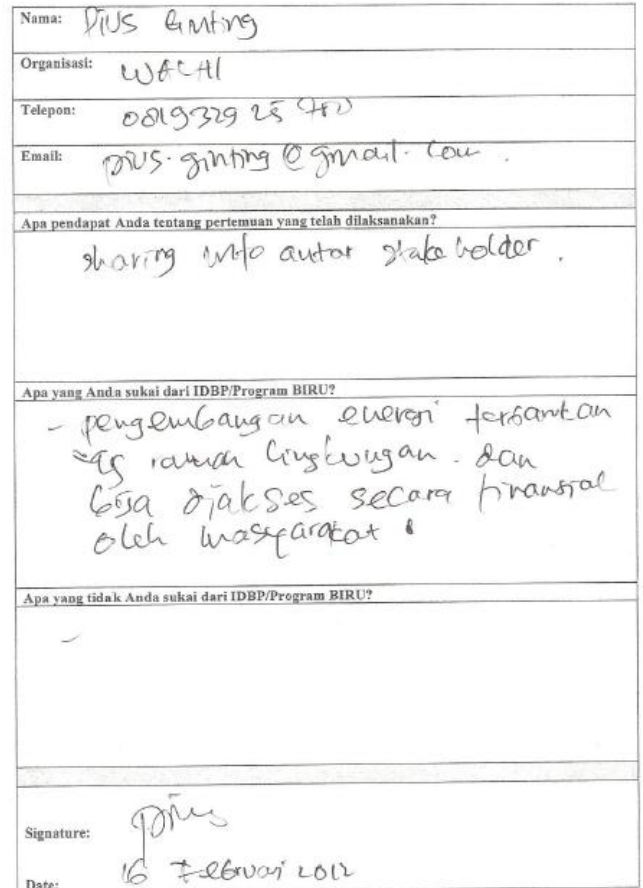 Nama: Pius Ginting
Organisasi: WALHI
Telepon: 0819329 25 700
Email: pius.ginting@gmail.com.
Apa pendapat Anda tentang pertemuan yang telah dilaksanakan?
sharing info antar stakeholder.
Apa yang Anda sukai dari IDBP/Program BIRU?
- pengembangan energi terbarukan
yg ramah lingkungan. dan
bisa diakses secara finansial
oleh masyarakat.
Apa yang tidak Anda sukai dari IDBP/Program BIRU?
-
Signature: Pius
Date: 16 Februari 2012